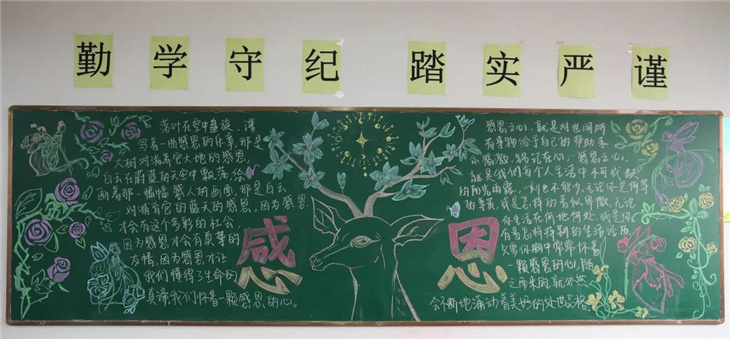 勤学守纪 踏实严谨
落叶在空中盘旋,谱
写着一曲感恩的乐章,那是
大树对滋养它大地的感恩
白云在蔚蓝的天空中飘荡,绘
画着那一幅幅感人的画面,那是白云
对哺育它的蓝天的感恩。因为感恩
才会有这个多彩的社会,
因为感恩才会有真挚的
友情,因为感恩才让
我们懂得了生命的
真谛我们怀着一颗感恩的心。
感恩
感恩之心,就是对世间所
有事物给予自己的帮助表
示感激,铭记在心,感恩之心,
就是我们每个人生活中不可或缺
的阳光雨露,一刻也不能少,无论你是何等
的尊贵,或是怎样的看似卑微,无论
你生活在何地何处,或是你
有着怎样特别的生活经历
只要你胸中常常怀着
一颗感恩的心,随
之而来的,就必然
会不断地涌动着美妙的处世品格